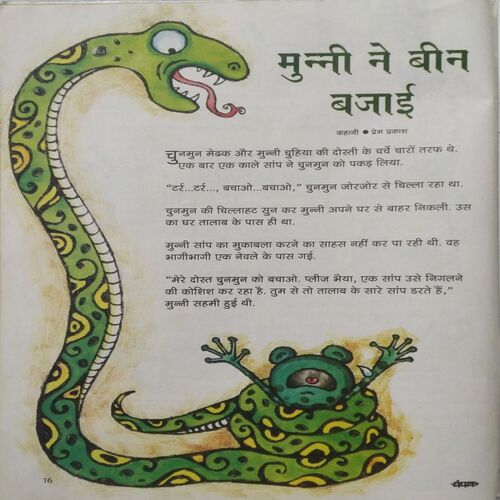 मुन्नी ने बीन
बजाई
कहानी ● प्रेम प्रकाश
चुनमुन मेढक और मुन्नी चुहिया की दोस्ती के चर्चे चारों तरफ थे.
एक बार एक काले सांप ने चुनमुन को पकड़ लिया.
“टर्र...टर्र..., बचाओ...बचाओ,” चुनमुन जोरजोर से चिल्ला रहा था.
चुनमुन की चिल्लाहट सुन कर मुन्नी अपने घर से बाहर निकली. उस
का घर तालाब के पास ही था.
मुन्नी सांप का मुकाबला करने का साहस नहीं कर पा रही थी. वह
भागीभागी एक नेवले के पास गई.
“मेरे दोस्त चुनमुन को बचाओ. प्लीज भैया, एक सांप उसे निगलने
की कोशिश कर रहा है. तुम से तो तालाब के सारे सांप डरते हैं,”
मुन्नी सहमी हुई थी.
16
चंपक